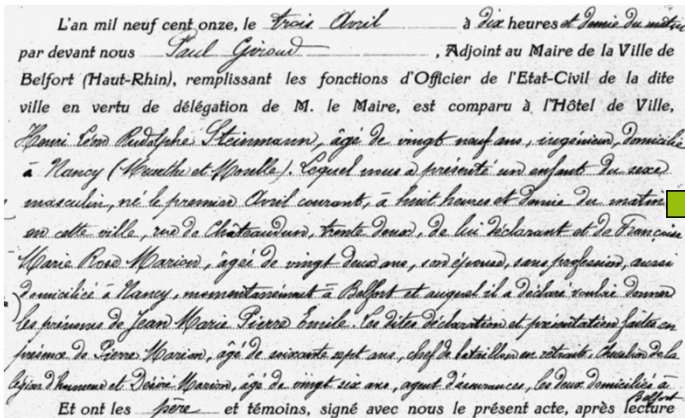 L'an mil neuf cent onze, le trois Avril à dix heures et demie du matin
par devant nous Paul Giroud, Adjoint au Maire de la Ville de
Belfort (Haut-Rhin), remplissant les fonctions d'Officier de l'Etat-Civil de la dite
ville en vertu de délégation de M. le Maire, est comparu à l'Hôtel de Ville,
Henri Léon Rudolphe Steinmann, âgé de vingt neuf ans, ingénieur, domicilié
à Nancy (Meurthe et Moselle). Lequel nous a présenté un enfant du sexe
masculin, né le premier Avril courant, à huit heures et demie du matin
en cette ville, rue de Châteaudun, trente deux, de lui déclarant et de Françoise
Marie Rose Marion, âgée de vingt deux ans, son épouse, sans profession, aussi
domiciliée à Nancy, momentanément à Belfort et auquel il a déclaré vouloir donner
les prénoms de Jean Marie Pierre Emile. Les dites déclaration et présentation faites en
présence de Pierre Marion, âgé de soixante sept ans, chef de bataillon en retraite, Chevalier de la
légion d'honneur et Désiré Marion, âgé de vingt six ans, agent d'assurances, les deux domiciliés à
Belfort
Et ont les père et témoins, signé avec nous le présent acte, après lecture